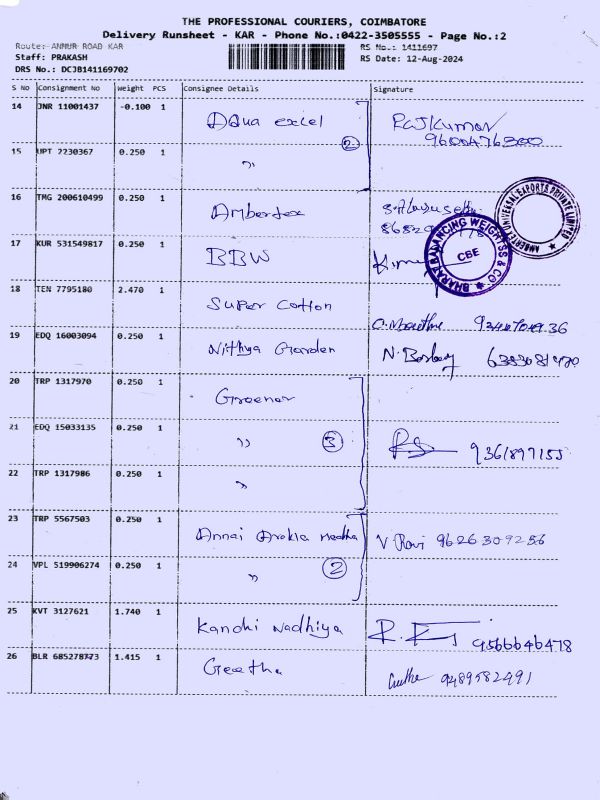 THE PROFESSIONAL COURIERS, COIMBATORE
Delivery Runsheet - KAR - Phone No.:0422-3505555 - Page No.:2
Route: ANNUR ROAD KAR RS No.: 1411697
Staff: PRAKASH RS Date: 12-Aug-2024
DRS No.: DCJB141169702
S No Consignment No Weight PCS Consignee Details Signature
14 JNR 11001437 -0.100 1 Aqua excel Rajkumar
②
15 UPT 2230367 0.250 1 "
16 TMG 200610499 0.250 1 Ambertex
AMBERTE UNIVERSAL EXPORTS PRIVATE LIMITED
17 KUR 531549817 0.250 1 BBW
BHARAT BALANCING WEIGHTSS & CO
CBE
18 TEN 7795180 2.470 1 Super Cotton
19 EDQ 16003094 0.250 1 Nithya Garden
20 TRP 1317970 0.250 1 Groener
21 EDQ 15033135 0.250 1 " ③ 9361897155
22 TRP 1317986 0.250 1 "
23 TRP 5567503 0.250 1 Annai Arokia Madha V Ravi 9626309256
24 VPL 519906274 0.250 1 " ②
25 KVT 3127621 1.740 1 Kandhi Nadhiya 9566646478
26 BLR 685278773 1.415 1 Geetha Geetha 9489582491